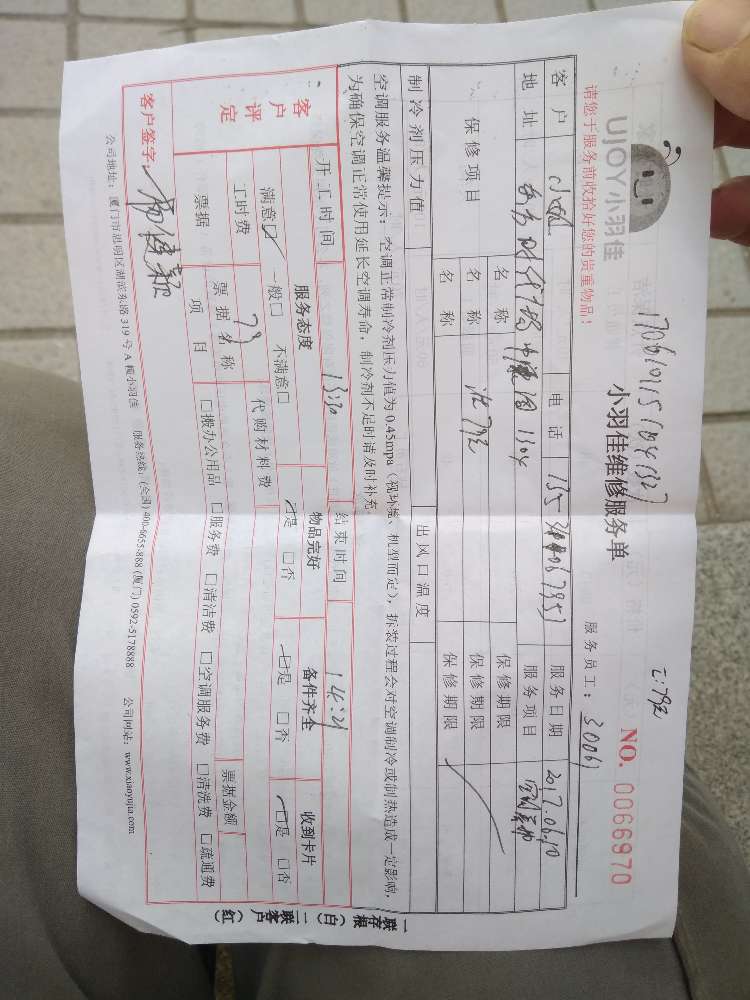 UJOY小羽佳
170610151841327
小羽佳维修服务单
NO. 0066970
请您于服务前收拾好您的贵重物品!
服务员工: 30061
客户 电话 服务日期 2017.06.10
地址 1304 服务项目
保修项目 名称 保修期限
名称 保修期限
名称 保修期限
制冷剂压力值 出风口温度
空调服务温馨提示: 空调正常制冷剂压力值为 0.45mpa (视环境、机型而定), 拆装过程会对空调制冷或制热造成一定影响,
为确保空调正常使用延长空调寿命, 制冷剂不足时请及时补充.
开工时间 13:20 结束时间 14:21
客户评定 服务态度 物品完好 备件齐全 收到卡片
满意☑ 一般□ 不满意□ ☑是 □否 ☑是 □否 ☑是 □否
工时费 代购材料费
票据 票据名称 票据金额
项目 □搬办公用品 □服务费 □清洁费 □空调服务费 □清洗费 □疏通费
客户签字:
公司地址: 厦门市思明区湖滨东路 319 号 A 幢小羽佳 服务热线: (全国) 400-6655-888 (厦门) 0592-5178888 公司网站: www.xiaoyujia.com
一联存根(白) 一联客户(红)